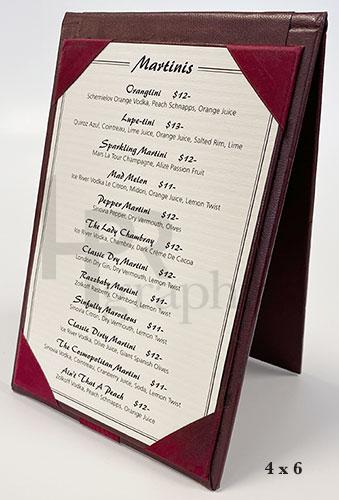 Martinis
Orangtini $12-
Schemielov Orange Vodka, Peach Schnapps, Orange Juice
Lupe-tini $13-
Quiroz Azul, Cointreau, Lime Juice, Orange Juice, Salted Rim, Lime
Sparkling Martini $12-
Mars La Tour Champagne, Alize Passion Fruit
Mad Melon $11-
Ice River Vodka Le Citron, Midori, Orange Juice, Lemon Twist
Pepper Martini $12-
Sinovia Pepper, Dry Vermouth, Olives
The Lady Chambray $12-
Ice River Vodka, Chambray, Dark Crème De Caccia
Classic Dry Martini $12-
London Dry Gin, Dry Vermouth, Lemon Twist
Razzbaby Martini $11-
Zolkoff Razberi, Chambord, Lemon Twist
Sinfully Marvelous $11-
Sinovia Citron, Dry Vermouth, Lemon Twist
Classic Dirty Martini $12-
Ice River Vodka, Olive Juice, Giant Spanish Olives
The Cosmopolitan Martini $11-
Sinovia Vodka, Cointreau, Cranberry Juice, Soda, Lemon Twist
Ain't That A Peach $12-
Zolkoff Vodka, Peach Schnapps, Orange Juice
graph
4 x 6